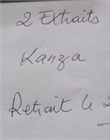 2 Extraits
Kanza
Retrait le 2